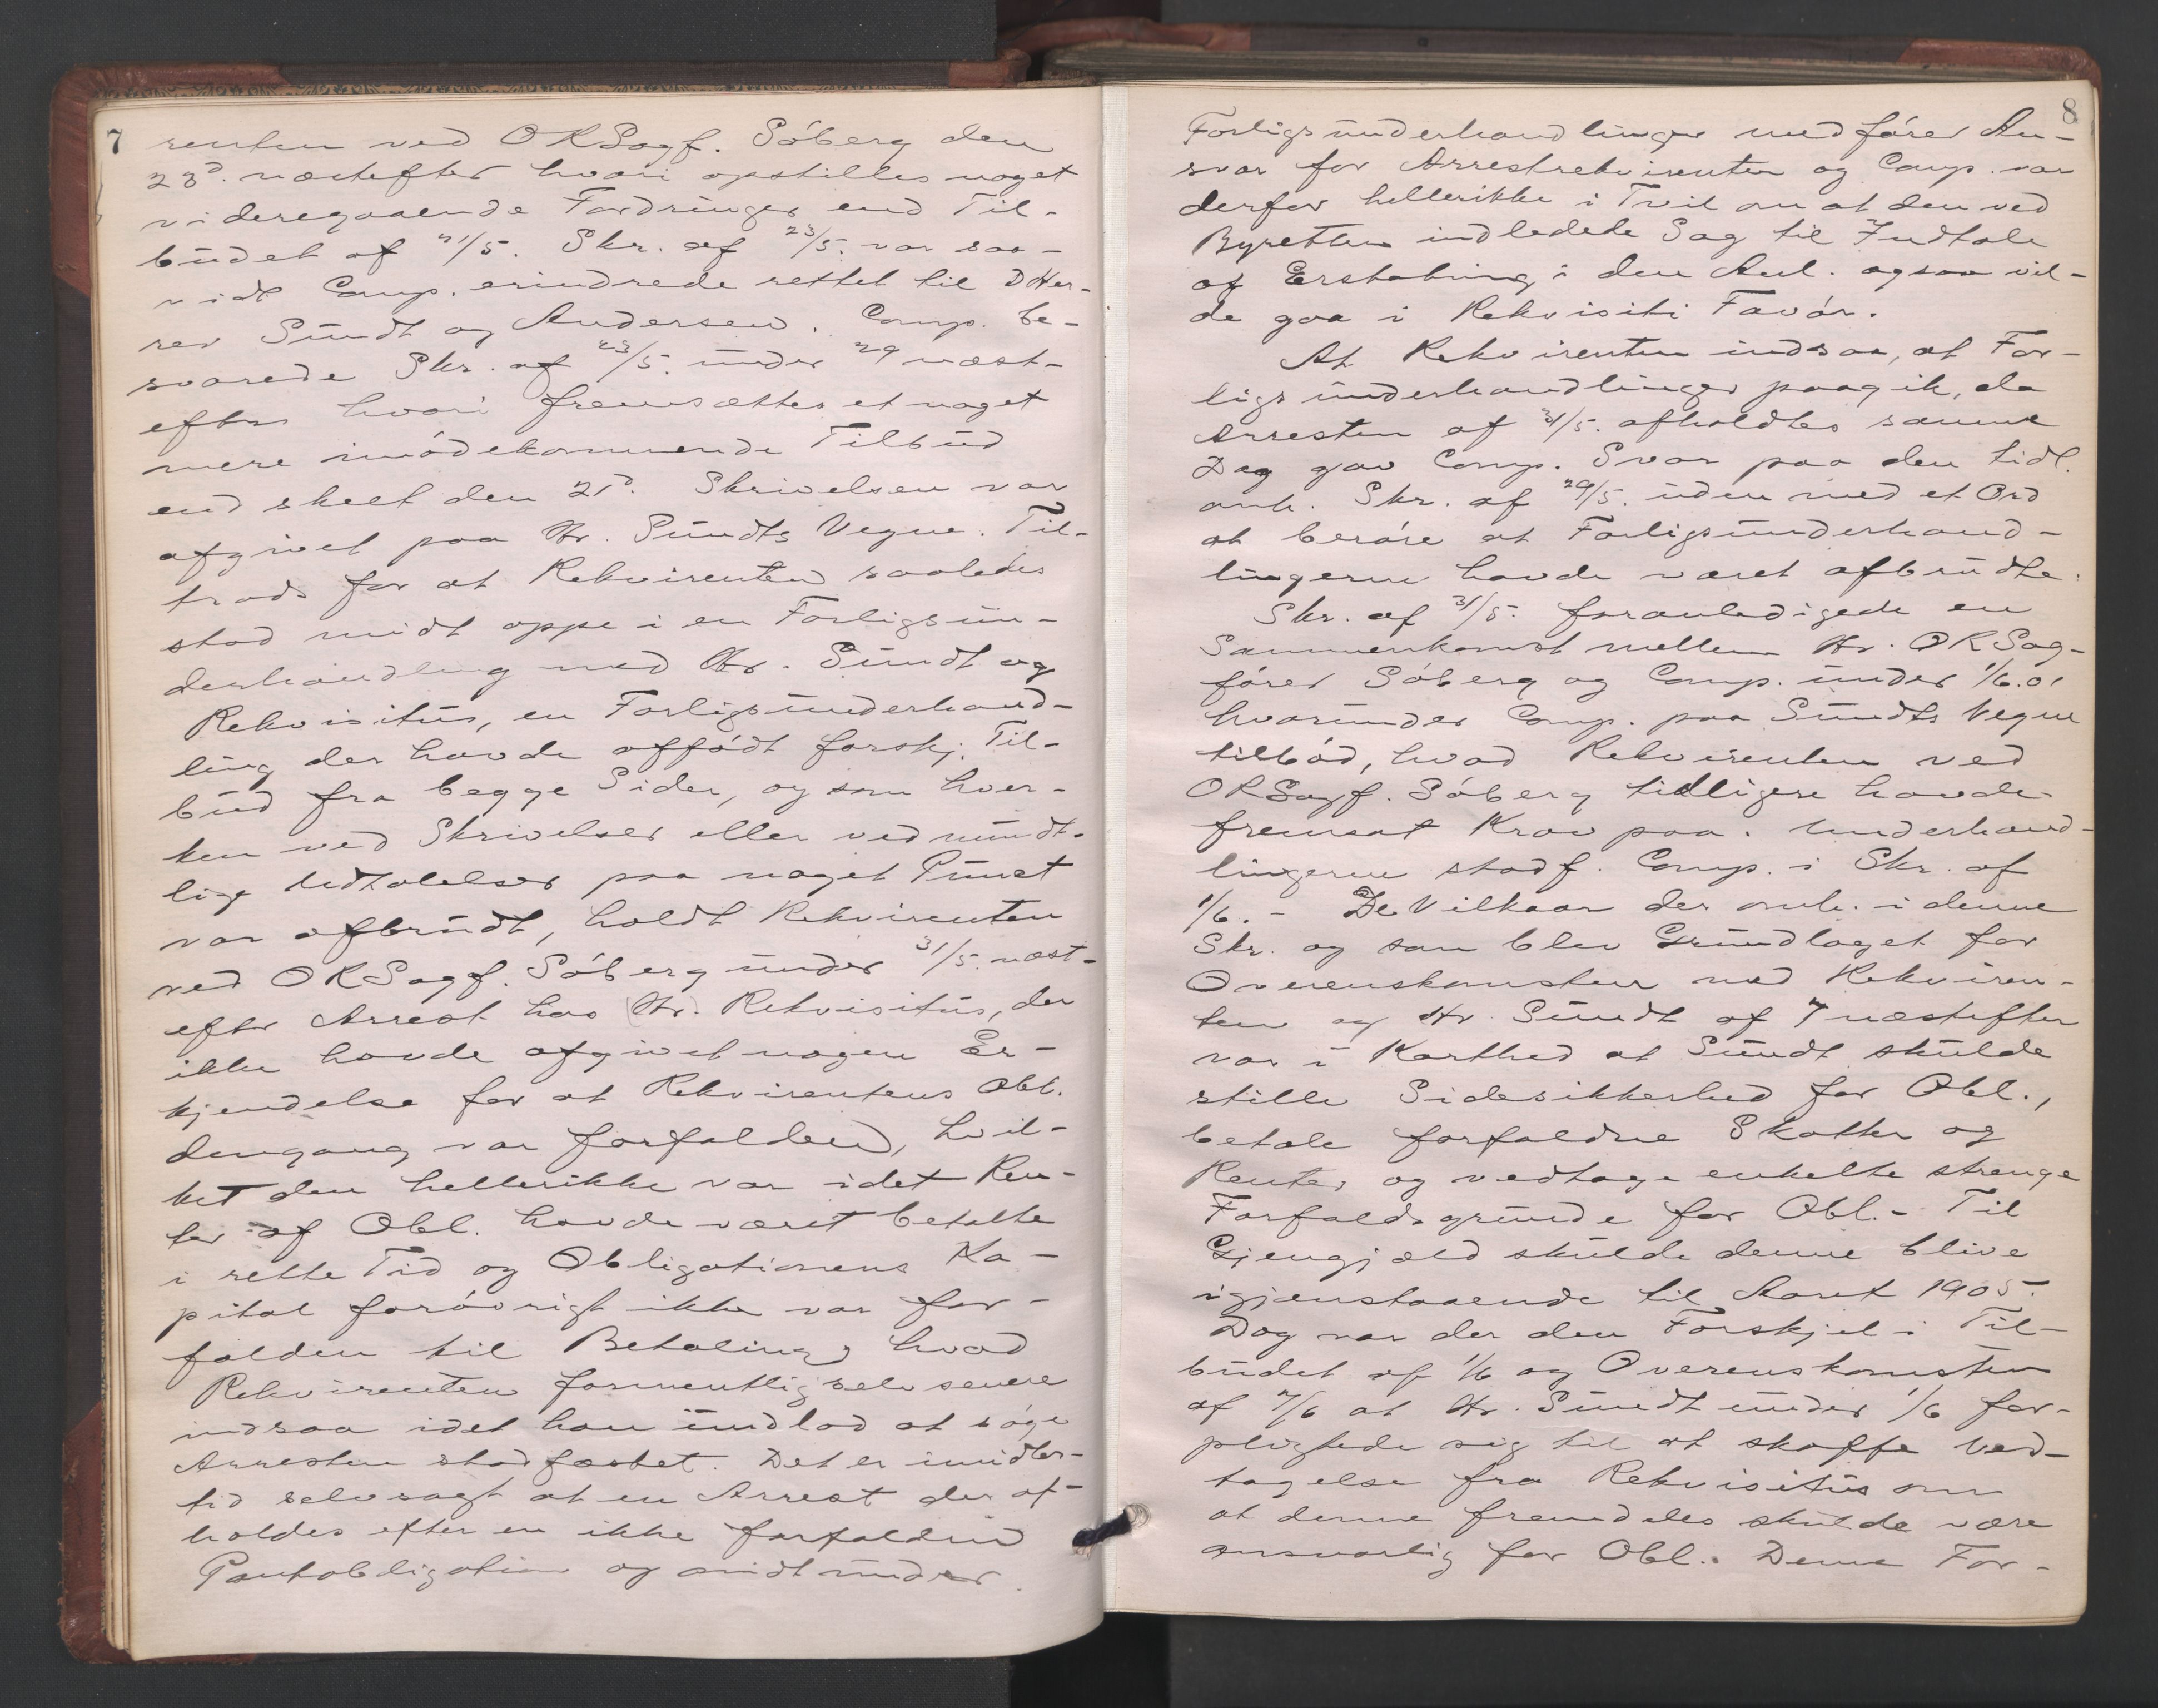 7
renten ved OKSagf. Söberg den
23d. næstefter hvori opstilles noget
videregaaende Fordringer end Til-
budet af 21/5. Skr. af 23/5. var saa-
vidt Comp. erindrede rettet til DHer-
rer Sundt og Andersen. Comp. be-
svarede Skr. af 23/5. under 29 næst-
efter hvori fremsættes et noget
mere imödekommende Tilbud
end skeet den 21d. Skrivelsen var
afgivet paa Hr. Sundts Vegne. Til-
trods for at Rekvirenten saaledes
stod midt oppe i en Forligsun-
derhandling med Hr. Sundt og
Rekvisitus, en Forligsunderhand-
ling der havde affödt forskj. Til-
bud fra begge Sider, og som hver-
ken ved Skrivelser eller ved mundt-
lige Udtalelser paa noget Punct
var afbrudt, holdt Rekvirenten
ved OKSagf. Söberg under 31/5. næst-
efter Arrest hos (Hr.) Rekvisitus, der
ikke havde afgivet nogen Er-
kjendelse for at Rekvirentens Obl.
dengang var forfalden, hvil-
ket den hellerikke var idet Ren-
ter af Obl. havde været betalte
i rette Tid og Obligationens Ka-
pital foróvrigt ikke var for-
falden til Betaling, hvad
Rekvirenten formentlig selv senere
indsaa idet han undlod at söge
Arresten stadfæstet. Det er imidler-
tid selvsagt at en Arrest der af-
holdes efter en ikke forfalden
Pantobligation og midt under
8
Forligsunderhandlinger medförer An-
svar for Arrestrekvirenten og Comp. var
derfor hellerikke i Tvil om at den ved
Byretten indledede Sag til Indtale
af Erstatning i den Anl. ogsaa vil-
de gaa i Rekvisiti Favör.
At Rekvirenten indsaa, at For-
ligsunderhandlinger paagik, da
Arresten af 31/5. afholdtes samme
Dag gav Comp. Svar paa den tidl.
omh. Skr. af 29/5. uden med et Ord
at beröre at Forligsunderhand-
lingerne havde været afbrudte.
Skr. af 31/5. foranledigede en
Sammenkomst mellem Hr. OKSag-
förer Söberg og Comp. under 1/6.01
hvorunder Comp. paa Sundts Vegne
tilböd, hvad Rekvirenten ved
OKSagf. Söberg tidligere havde
fremsat Krav paa. Underhand-
lingerne stadf. Comp. i Skr. af
1/6. - De Vilkaar der omh. i denne
Skr. og som blev Grundlaget for
Overenskomsten med Rekviren-
ten og Hr Sundt af 7 næstefter
var i Korthed at Sundt skulde
stille Sidesikkerhed for Obl.,
betale forfaldne Skatter og
Renter og vedtage enkelte strenge
Forfaldsgrunde for Obl. - Til
Gjengjæld skulde denne blive
igjenstaaende til Aaret 1905.
Dog var der den Forskjel i Til-
budet af 1/6 og Overenskomsten
af 7/6 at Hr. Sundt under 1/6 for-
pligtede sig til at skaffe Ved-
tagelse fra Rekvisitus om
at denne fremdeles skulde være
ansvarlig for Obl.. Denne For-